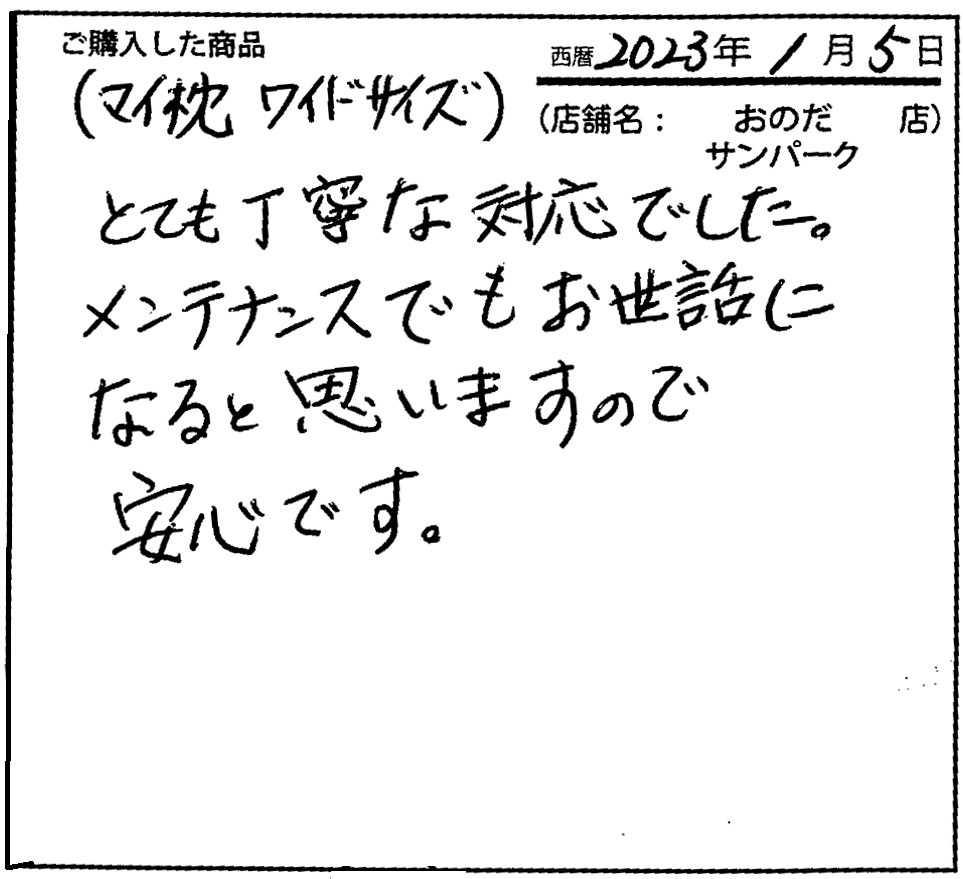 ご購入した商品
西暦2023年1月5日
(マイ枕 ワイドサイズ)
(店舗名： おのだサンパーク 店)
とても丁寧な対応でした。
メンテナンスでもお世話に
なると思いますので
安心です。